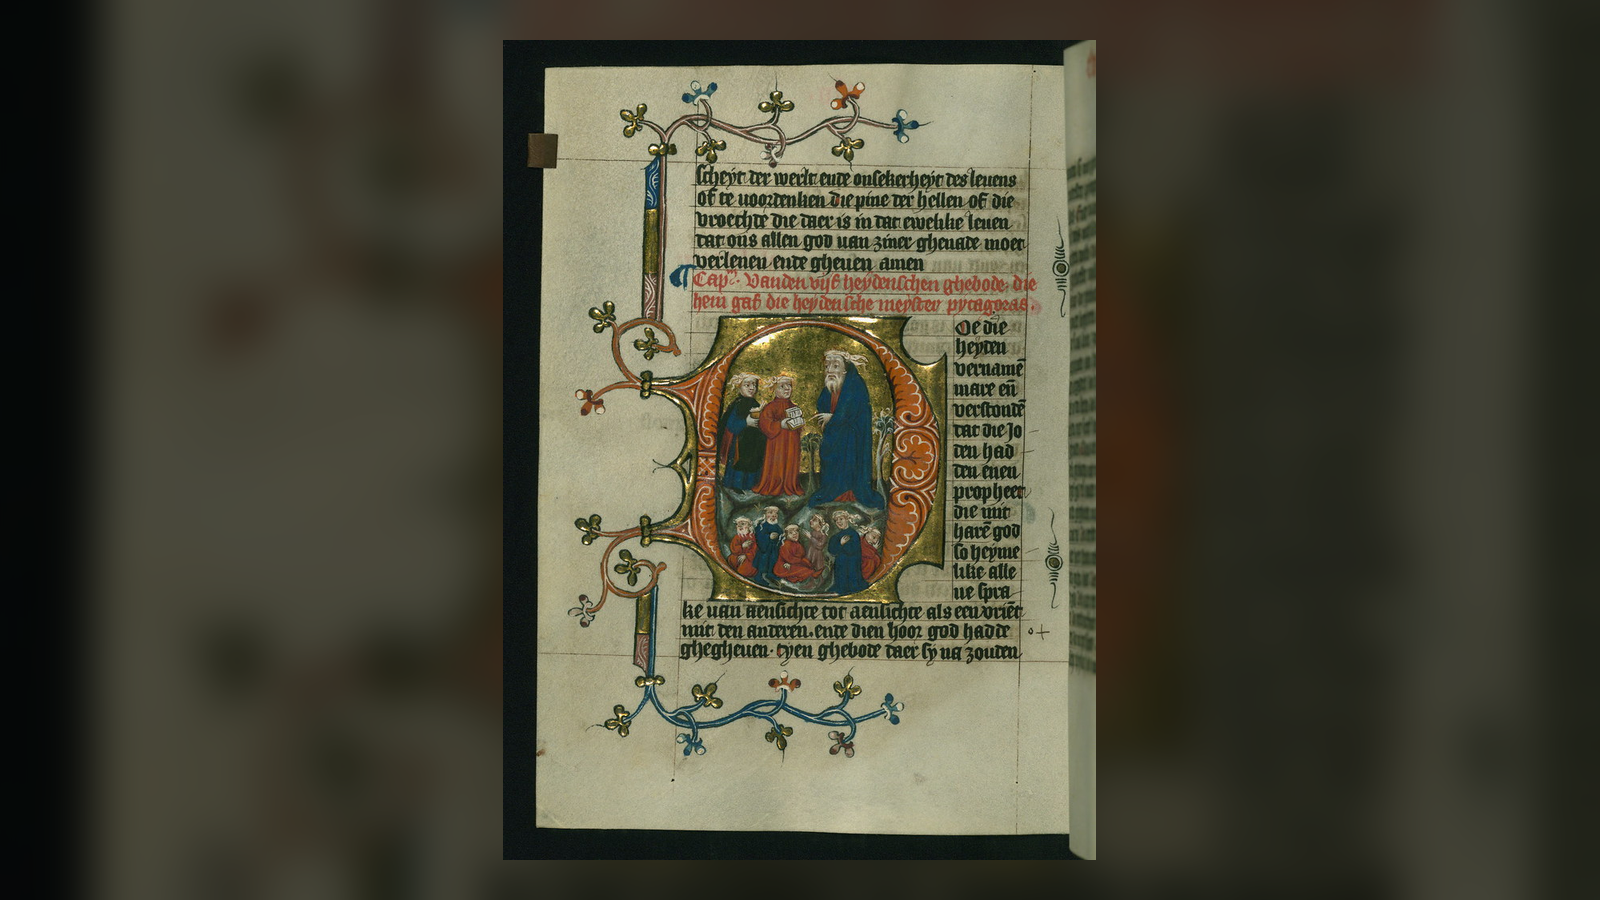 scheyt der werlt ende onsekerheyt des leuens
of te uoordenken die pine der hellen of die
vroechde die daer is in dat ewelike leuen
dat ons allen god uan ziner ghenade moet
verlenen ende gheuen amen
Capᵐ. Vanden vijf heydenschen ghebode, die
hem gaf die heydensche meyster pytagoras.
Oe die
heyden
vernamē
mare eñ
verstondē
dat die Jo
den had
den enen
propheet
die mit
harē god
so heyme
like alle
ne spra
ke uan aensichte tot aensichte als een vriēt
mit den anderen. ende dien hoor god hadde
ghegheuen. tyen ghebode daer sy na zouden